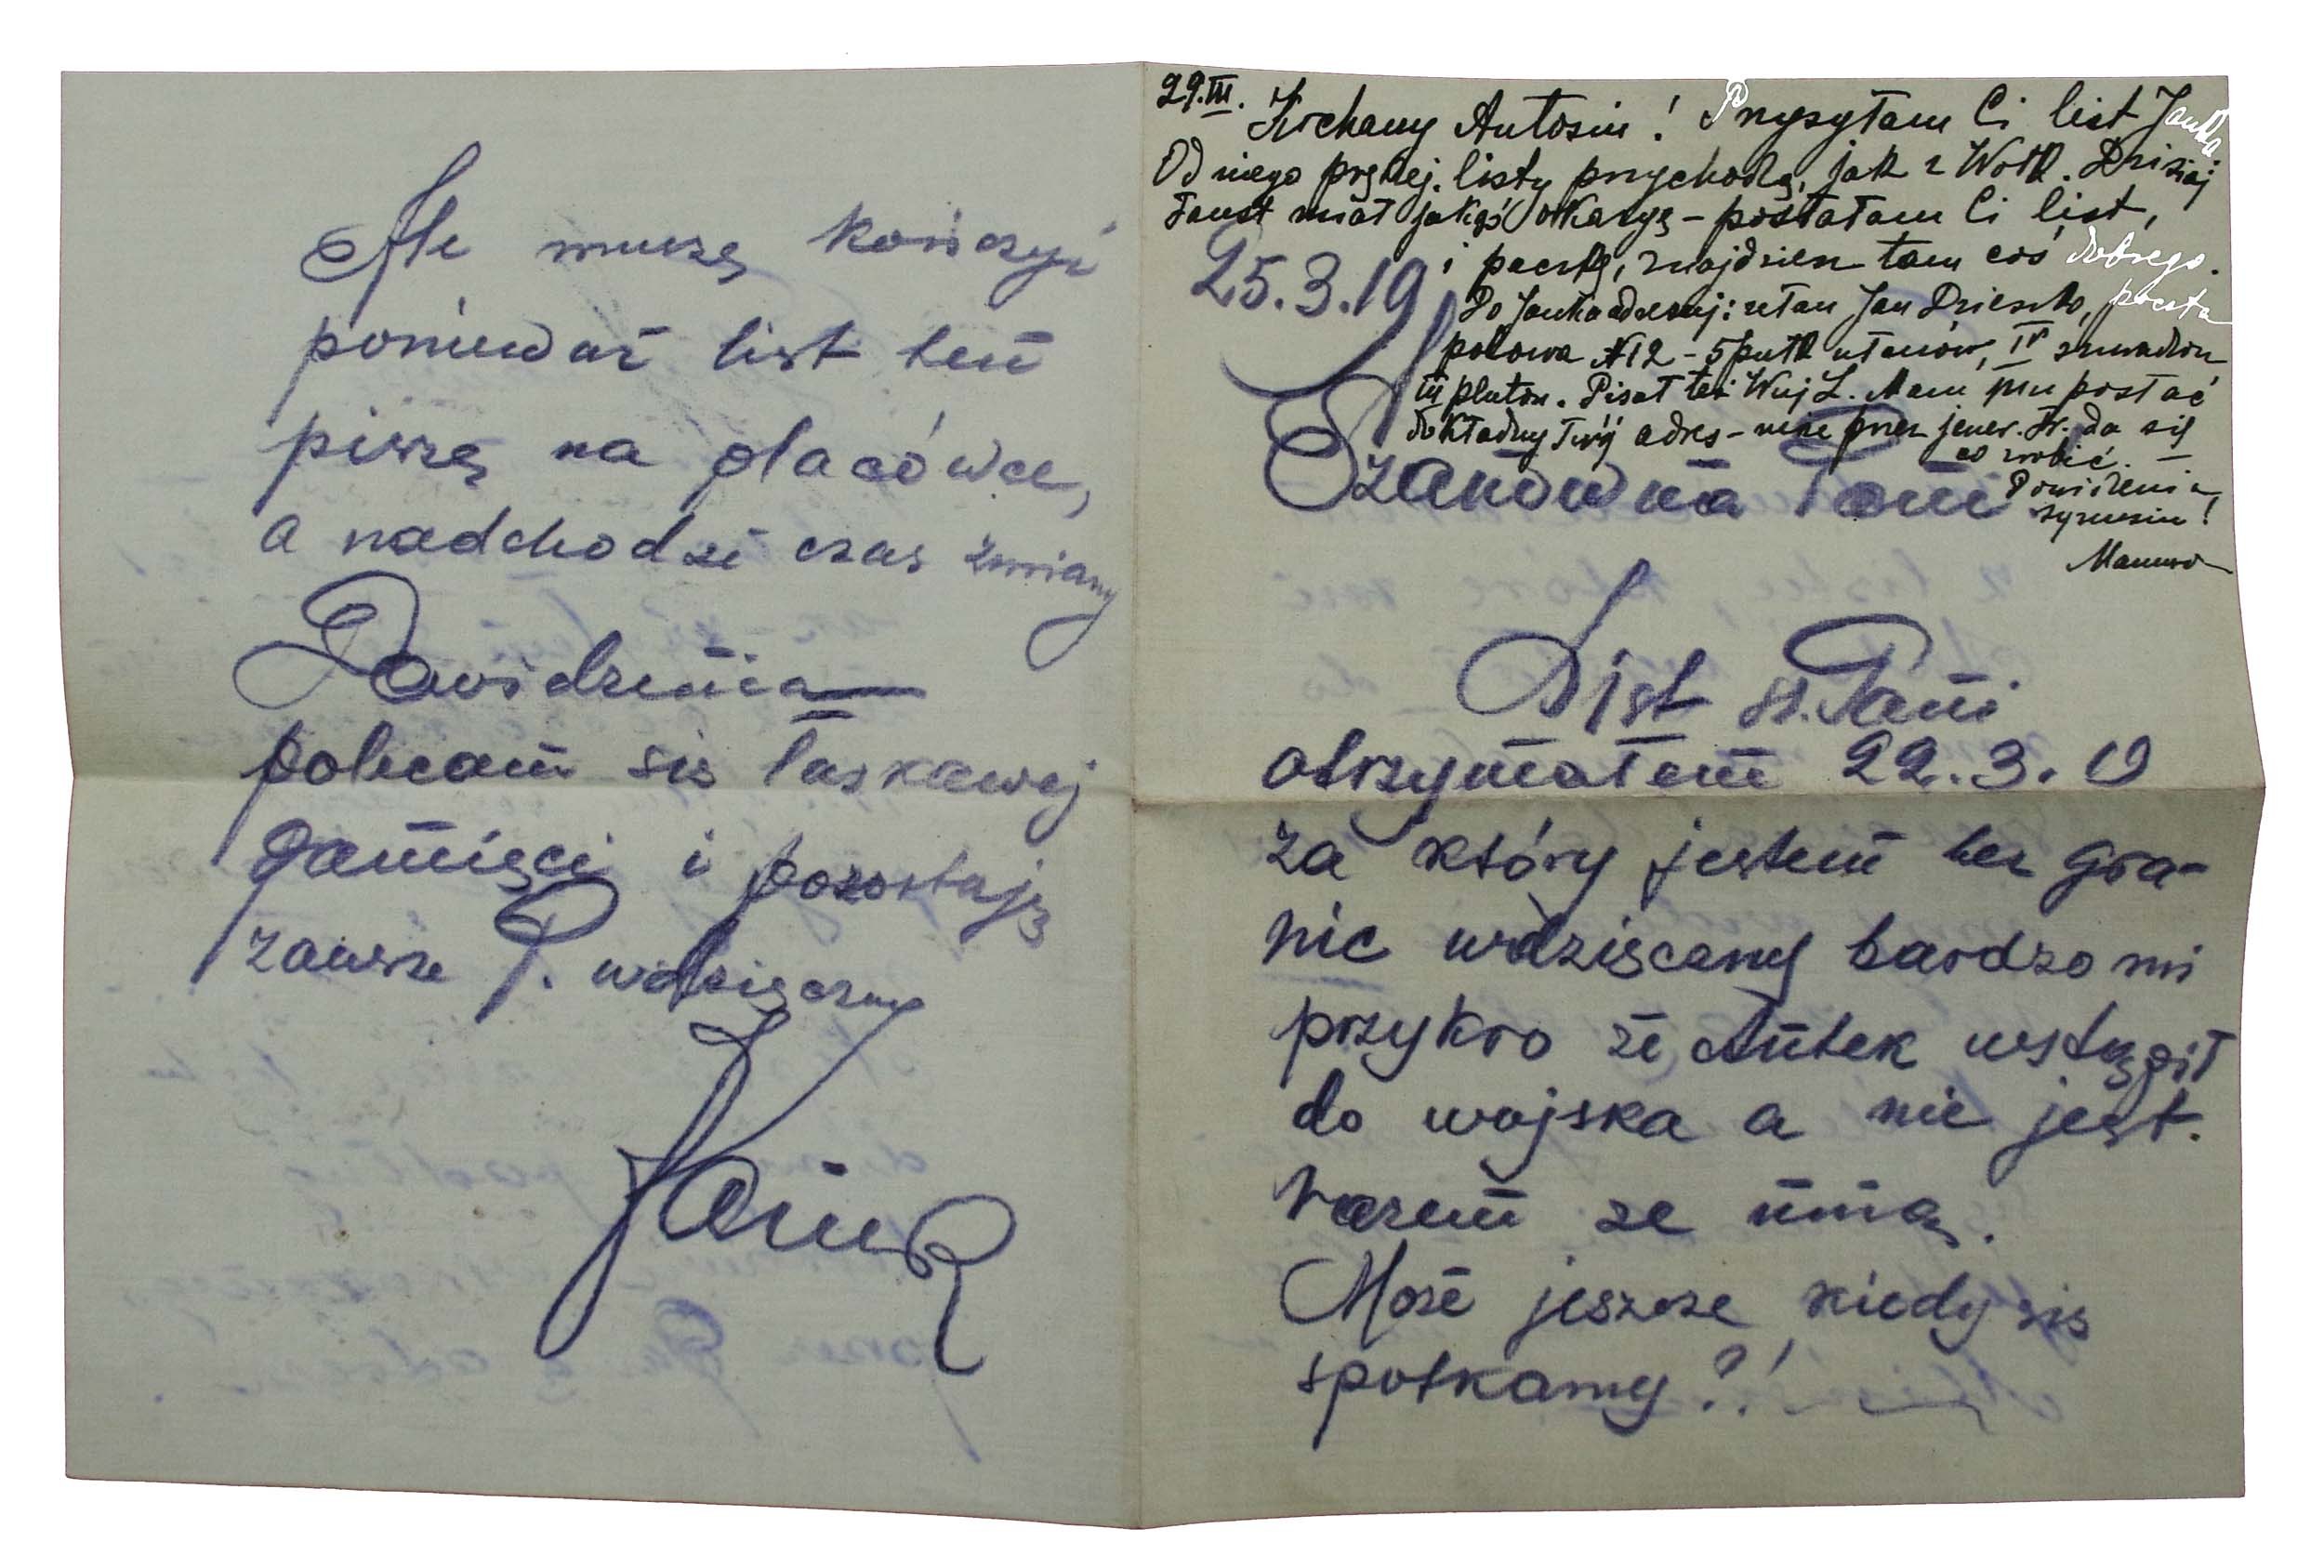 29.III. Kochany Antosiu! Przysyłam Ci list Janka
Od niego prędzej listy przychodzą, jak z Wołk. Dzisiaj
Faust miał jakąś okazyę – posłałam Ci list,
i paczkę, znajdziesz tam coś dobrego.
Do Janka adresuj: ułan Jan Dzieszko, poczta
polowa №12 – 5 pułk ułanów, IV szwadron
III pluton. Pisał też Wuj L. Mam mu posłać
dokładny Twój adres – może przez jener. Fr. da się
co zrobić.
Powidzenia
synusiu!
Mamusia
25.3.19
Szanowna Pani
List sz. Pani
otrzymałem 22.3.19
za który jestem bez gra-
nic wdzięczny bardzo mi
przykro że Antek wstąpił
do wojska a nie jest.
razem ze mną.
Może jeszcze kiedy się
spotkamy?!
Ale muszę kończyć
ponieważ list ten
piszę na placówce,
a nadchodzi czas zmiany
Dowidzenia
polecam się łaskawej
pamięci i pozostaję
zawsze P. wdzięczny
Janek